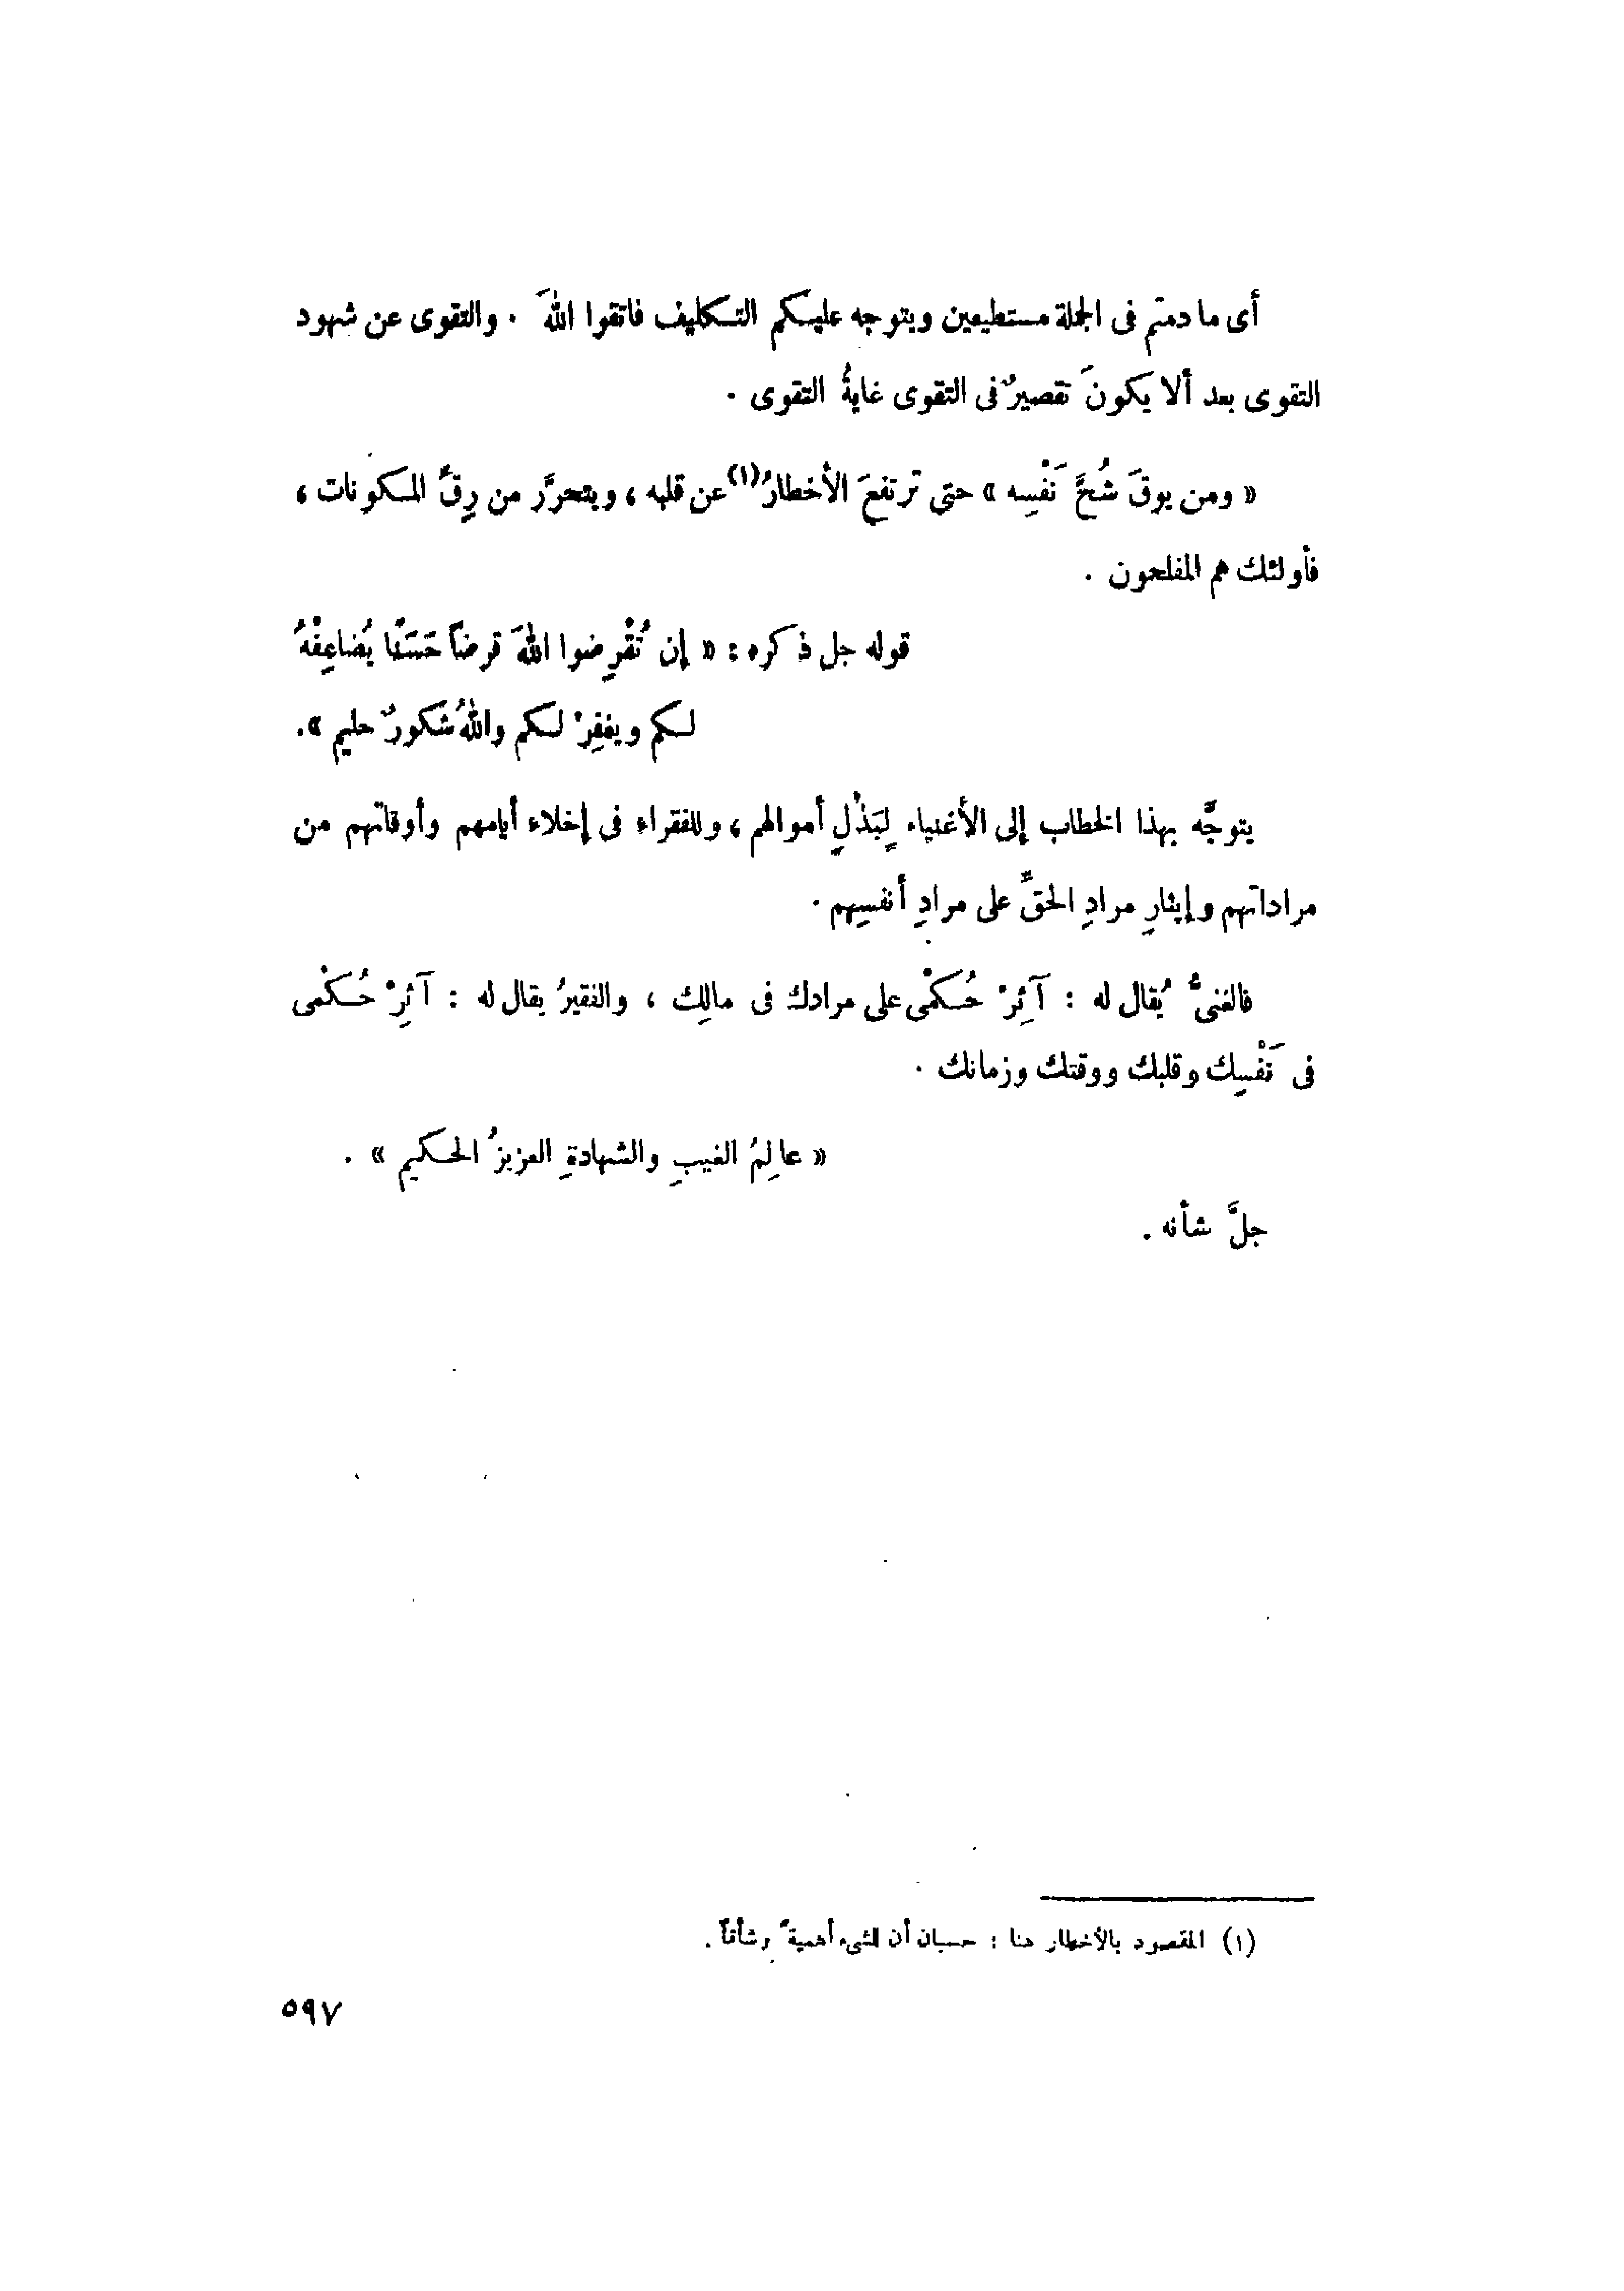 أى ما دمتم فى الجملة مستطيعين ويتوجه عليكم التكليف فاتقوا اللهَ . والتقوى عن شهود
التقوى بعد ألا يكونَ تقصيرٌ فى التقوى غايةُ التقوى .
« ومن يوقَ شُحَّ نَفْسِه » حتى ترتفعَ الأخطارُ(١) عن قلبه ، ويتحرَّر من رِقِّ المكونات ،
فأولئك هم المفلحون .
قوله جل ذكره : « إن تُقْرِضوا اللهَ قرضاً حَسَنًا يُضاعِفْهُ
لكم ويغفِرْ لكم واللهُ شكورٌ حليم ».
يتوجَّه بهذا الخطاب إلى الأغنياء لِبَذْلِ أموالهم ، وللفقراء فى إخلاء أيامهم وأوقاتهم من
مراداتهم وإيثارِ مرادِ الحقِّ على مرادِ أنفسِهم .
فالغنىُّ يُقال له : آثِرْ حُكْمى على مرادك فى مالِك ، والفقيرُ يقال له : آثِرْ حُكْمى
فى نَفْسِك وقلبك ووقتك وزمانك .
« عالِمُ الغيبِ والشهادةِ العزيزُ الحكيم » .
جلَّ شأنه .
(١) المقصود بالأخطار هنا : حسبان أن للشىء أهميةً وشأناً .
٥٩٧